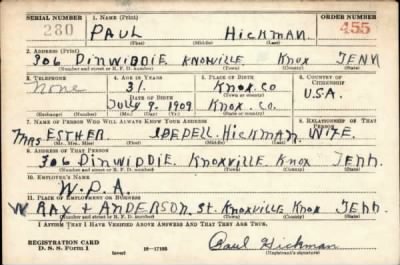 SERIAL NUMBER 1. NAME (Print) ORDER NUMBER
280 PAUL HICKMAN 455
(First) (Middle) (Last)
2. ADDRESS (Print)
306 DINWIDDIE KNOXVILLE KNOX TENN
(Number and street or R. F. D. number) (Town) (County) (State)
3. TELEPHONE 4. AGE IN YEARS 5. PLACE OF BIRTH 6. COUNTRY OF CITIZENSHIP
None 31 KNOX. CO
DATE OF BIRTH U.S.A.
JULY 9. 1909 KNOX. CO.
(Mo.) (Day) (Yr.) (State or country)
7. NAME OF PERSON WHO WILL ALWAYS KNOW YOUR ADDRESS 8. RELATIONSHIP OF THAT PERSON
MRS ESTHER HICKMAN WIFE
(Mr., Mrs., Miss) (First) (Middle) (Last)
9. ADDRESS OF THAT PERSON
306 DINWIDDIE. KNOXVILLE. KNOX TENN.
(Number and street or R. F. D. number) (Town) (County) (State)
10. EMPLOYER'S NAME
W.P.A.
11. PLACE OF EMPLOYMENT OR BUSINESS
W RAY + ANDERSON. St. KNOXVILLE KNOX TENN.
(Number and street or R. F. D. number) (Town) (County) (State)
I AFFIRM THAT I HAVE VERIFIED ABOVE ANSWERS AND THAT THEY ARE TRUE.
REGISTRATION CARD
D. S. S. Form 1 16-17105 Paul Hickman
(Registrant's signature)